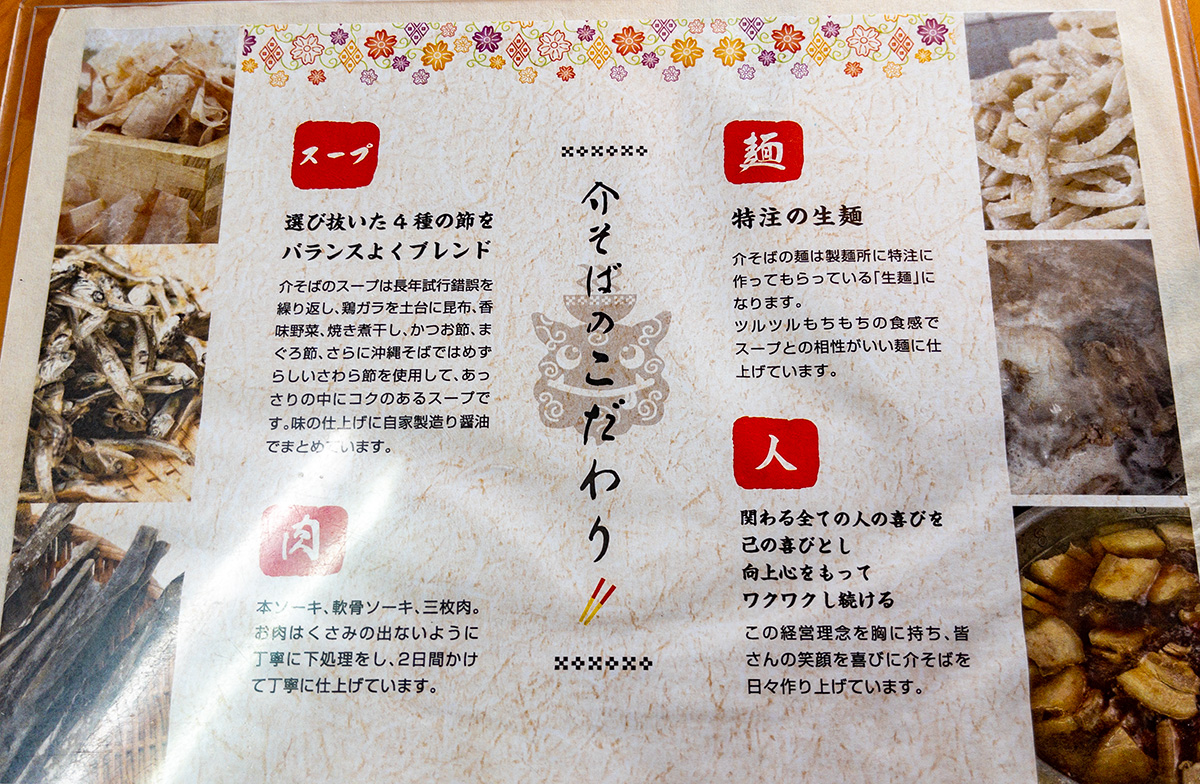 介そばのこだわり
スープ
選び抜いた4種の節を
バランスよくブレンド
介そばのスープは長年試行錯誤を
繰り返し、鶏ガラを土台に昆布、香
味野菜、焼き煮干し、かつお節、ま
ぐろ節、さらに沖縄そばではめず
らしいさわら節を使用して、あっ
さりの中にコクのあるスープで
す。味の仕上げに自家製造り醤油
でまとめています。
肉
本ソーキ、軟骨ソーキ、三枚肉。
お肉はくさみの出ないように
丁寧に下処理をし、2日間かけ
て丁寧に仕上げています。
麺
特注の生麺
介そばの麺は製麺所に特注に
作ってもらっている「生麺」に
なります。
ツルツルもちもちの食感で
スープとの相性がいい麺に仕
上げています。
人
関わる全ての人の喜びを
己の喜びとし
向上心をもって
ワクワクし続ける
この経営理念を胸に持ち、皆
さんの笑顔を喜びに介そばを
日々作り上げています。